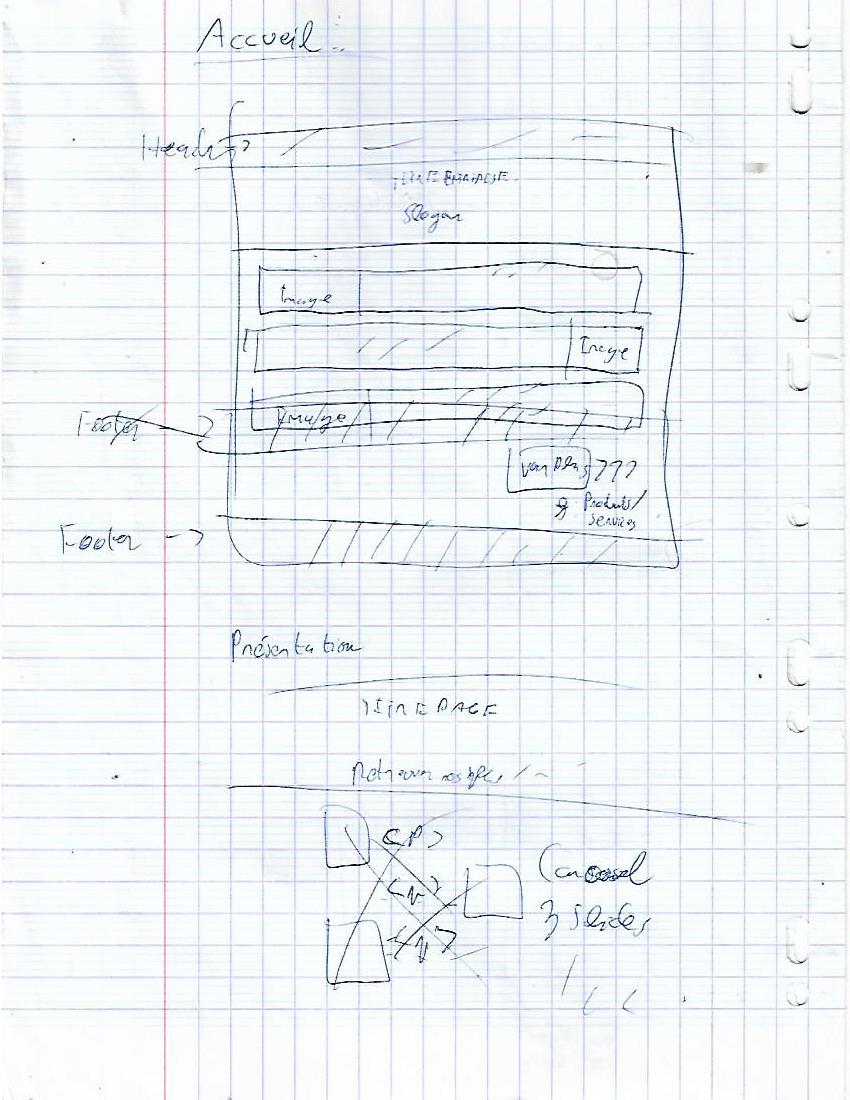 Accueil :
Header
TITRE ENTREPRISE
Slogan
Image
Image
Image
Footer
???
Produits/
services
Footer ->
Présentation
TITRE PAGE
Retrouver
<P>
<N>
<N>
Carousel
3 Slides